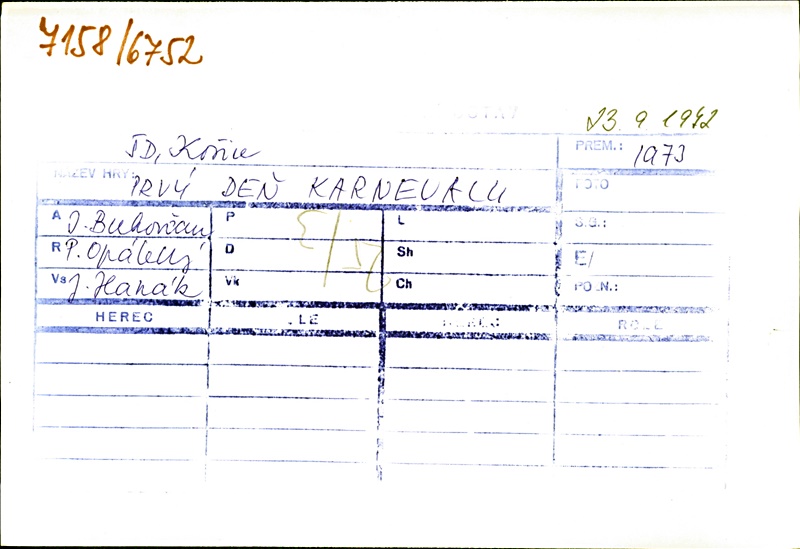 7158/6752
23. 9 1942
ŠD, Košice
PREM.: 1973
NÁZEV HRY:
PRVÝ DEŇ KARNEVALU
FOTO
A J. Bukovčan P L S.G.:
R P. Opálený D Sh E/
Vs J. Hanák Vk Ch POZN.:
HEREC HEREC ROLE